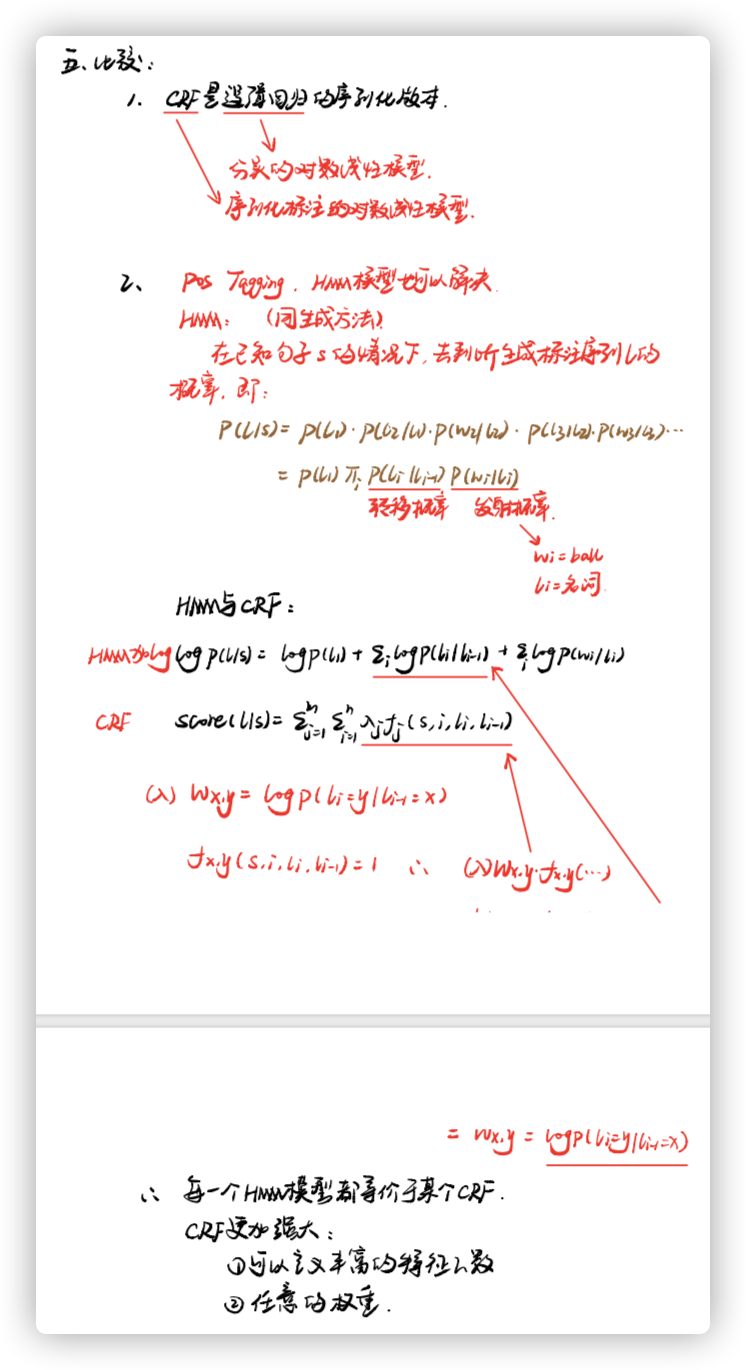 五、比较：
1. CRF是逻辑回归的序列化版本.
分类的对数线性模型.
序列化标注的对数线性模型.
2、 Pos Tagging . HMM模型也可以解决.
HMM： （用生成方法）
在已知句子s的情况下，去判断生成标注序列l的
概率，即：
P(l|s) = p(l₁)·p(l₂|l₁)·p(w₂|l₂)·p(l₃|l₂)·p(w₃|l₃)···
= p(l₁) πᵢ p(lᵢ|lᵢ₋₁) p(wᵢ|lᵢ)
转移概率 发射概率.
wᵢ=ball
lᵢ=名词.
HMM与CRF：
HMM加log log p(l|s) = log p(l₁) + Σᵢ log p(lᵢ|lᵢ₋₁) + Σᵢ log p(wᵢ|lᵢ)
CRF score(l|s) = Σᵐⱼ₌₁ Σⁿᵢ₌₁ λⱼfⱼ(s,i,lᵢ,lᵢ₋₁)
(λ) Wx,y = log p(lᵢ=y|lᵢ₋₁=x)
fx,y(s,i,lᵢ,lᵢ₋₁)=1 ∴ (λ)Wx,y·fx,y(···)
= Wx,y = log p(lᵢ=y|lᵢ₋₁=x)
∴ 每一个HMM模型都等价于某个CRF.
CRF更加强大：
①可以定义丰富的特征函数
② 任意的权重.